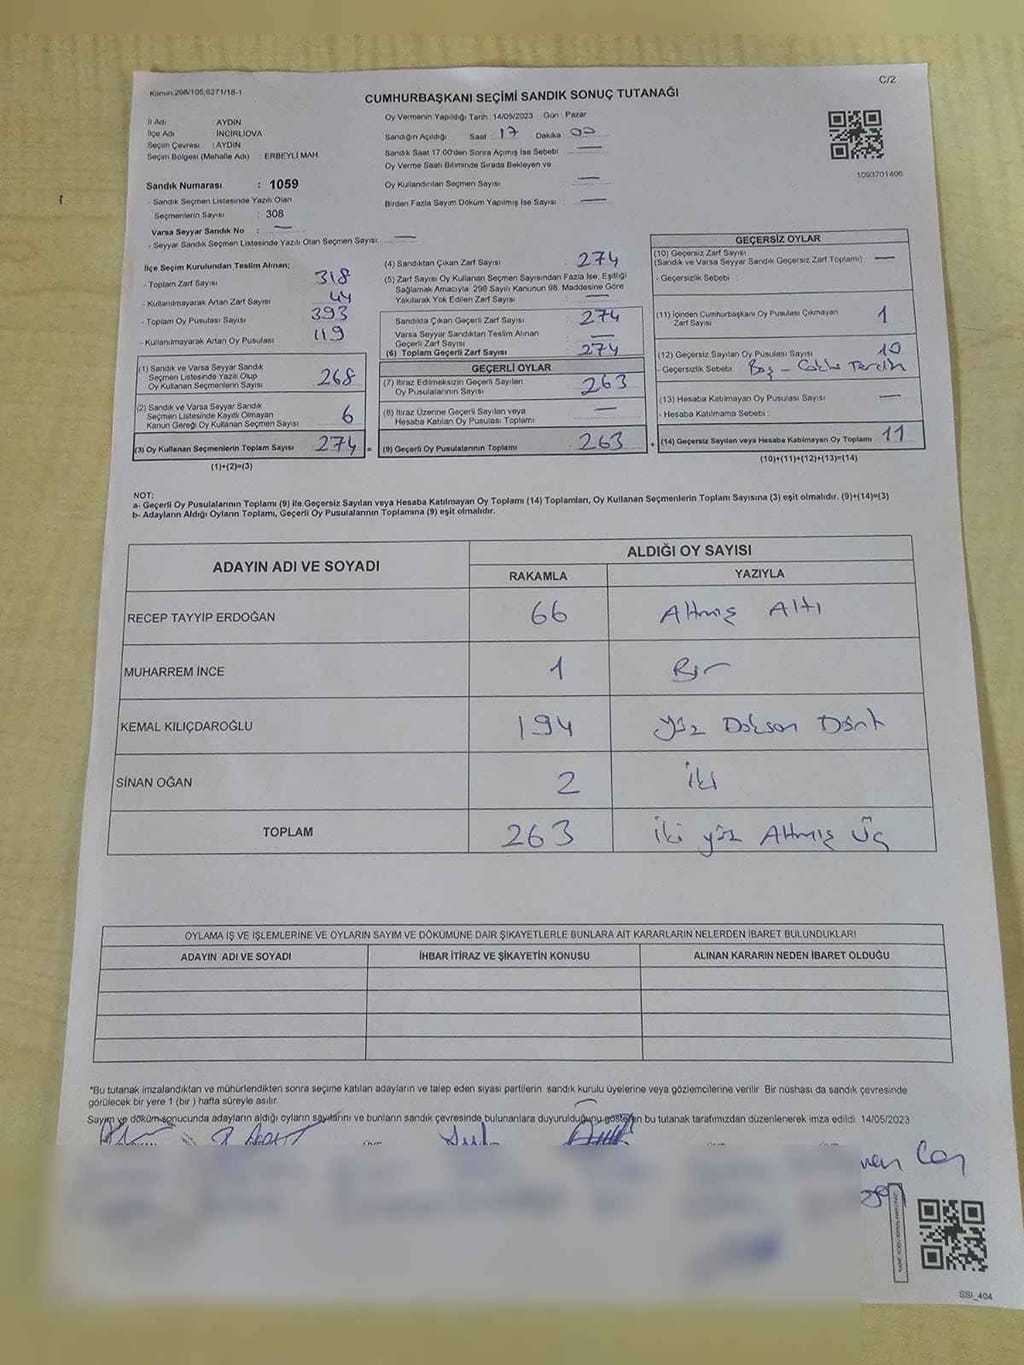 Kanun:298/105,6271/18-1
C/2
CUMHURBAŞKANI SEÇİMİ SANDIK SONUÇ TUTANAĞI
İl Adı : AYDIN
İlçe Adı : İNCİRLİOVA
Seçim Çevresi : AYDIN
Seçim Bölgesi (Mahalle Adı) : ERBEYLİ MAH.
Sandık Numarası : 1059
- Sandık Seçmen Listesinde Yazılı Olan
Seçmenlerin Sayısı : 308
Varsa Seyyar Sandık No : —
- Seyyar Sandık Seçmen Listesinde Yazılı Olan Seçmen Sayısı: —
Oy Vermenin Yapıldığı Tarih: 14/05/2023 Gün Pazar
Sandığın Açıldığı Saat : 17 Dakika 00
Sandık Saat 17.00'den Sonra Açılmış İse Sebebi —
Oy Verme Saati Bitiminde Sırada Bekleyen ve
Oy Kullandırılan Seçmen Sayısı —
Birden Fazla Sayım Döküm Yapılmış İse Sayısı —
1093701406
İlçe Seçim Kurulundan Teslim Alınan;
- Toplam Zarf Sayısı 318
- Kullanılmayarak Artan Zarf Sayısı 44
- Toplam Oy Pusulası Sayısı 393
- Kullanılmayarak Artan Oy Pusulası 119
(1) Sandık ve Varsa Seyyar Sandık
Seçmen Listesinde Yazılı Olup
Oy Kullanan Seçmenlerin Sayısı 268
(2) Sandık ve Varsa Seyyar Sandık
Seçmen Listesinde Kayıtlı Olmayan
Kanun Gereği Oy Kullanan Seçmen Sayısı 6
(3) Oy Kullanan Seçmenlerin Toplam Sayısı 274 =
(1)+(2)=(3)
(4) Sandıktan Çıkan Zarf Sayısı 274
(5) Zarf Sayısı Oy Kullanan Seçmen Sayısından Fazla İse, Eşitliği
Sağlamak Amacıyla, 298 Sayılı Kanunun 98. Maddesine Göre
Yakılarak Yok Edilen Zarf Sayısı —
Sandıkda Çıkan Geçerli Zarf Sayısı 274
Varsa Seyyar Sandıktan Teslim Alınan
Geçerli Zarf Sayısı —
(6) Toplam Geçerli Zarf Sayısı 274
GEÇERLİ OYLAR
(7) İtiraz Edilmeksizin Geçerli Sayılan
Oy Pusulalarının Sayısı 263
(8) İtiraz Üzerine Geçerli Sayılan veya
Hesaba Katılan Oy Pusulası Toplamı —
(9) Geçerli Oy Pusulalarının Toplamı 263 +
GEÇERSİZ OYLAR
(10) Geçersiz Zarf Sayısı
(Sandık ve Varsa Seyyar Sandık Geçersiz Zarf Toplamı) —
- Geçersizlik Sebebi :
(11) İçinden Cumhurbaşkanı Oy Pusulası Çıkmayan
Zarf Sayısı 1
(12) Geçersiz Sayılan Oy Pusulası Sayısı 10
- Geçersizlik Sebebi : Boş -
(13) Hesaba Katılmayan Oy Pusulası Sayısı —
- Hesaba Katılmama Sebebi :
(14) Geçersiz Sayılan veya Hesaba Katılmayan Oy Toplamı 11
(10)+(11)+(12)+(13)=(14)
NOT:
a- Geçerli Oy Pusulalarının Toplamı (9) ile Geçersiz Sayılan veya Hesaba Katılmayan Oy Toplamı (14) Toplamları, Oy Kullanan Seçmenlerin Toplam Sayısına (3) eşit olmalıdır. (9)+(14)=(3)
b- Adayların Aldığı Oyların Toplamı, Geçerli Oy Pusulalarının Toplamına (9) eşit olmalıdır.
ADAYIN ADI VE SOYADI ALDIĞI OY SAYISI
RAKAMLA YAZIYLA
RECEP TAYYİP ERDOĞAN 66 Altmış Altı
MUHARREM İNCE 1 Bir
KEMAL KILIÇDAROĞLU 194 Yüz Doksan Dört
SİNAN OĞAN 2 İki
TOPLAM 263 İki yüz Altmış Üç
OYLAMA İŞ VE İŞLEMLERİNE VE OYLARIN SAYIM VE DÖKÜMÜNE DAİR ŞİKAYETLERLE BUNLARA AİT KARARLARIN NELERDEN İBARET BULUNDUKLARI
ADAYIN ADI VE SOYADI İHBAR İTİRAZ VE ŞİKAYETİN KONUSU ALINAN KARARIN NEDEN İBARET OLDUĞU
*Bu tutanak imzalandıktan ve mühürlendikten sonra seçime katılan adayların ve talep eden siyasi partilerin sandık kurulu üyelerine veya gözlemcilerine verilir. Bir nüshası da sandık çevresinde
görülecek bir yere 1 (bir) hafta süreyle asılır.
Sayım ve döküm sonucunda adayların aldığı oyların sayılarını ve bunların sandık çevresinde bulunanlara duyurulduğunu gösteren bu tutanak tarafımızdan düzenlenerek imza edildi. 14/05/2023
SSI_404